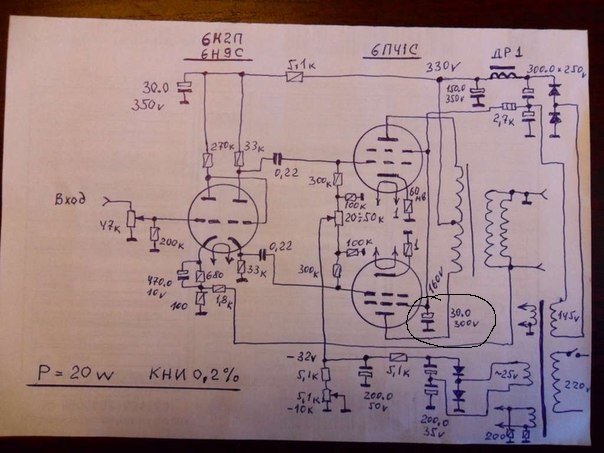 6Н2П
6Н9С
6П41С
ДР1
5,1к
330v
300.0×250v
30.0
350v
150.0
350v
2,7к
270к
33к
0,22
300к
60
мв
Вход
100к
47к
20÷50к
1
200к
0,22
100к
1
470.0
10v
680
33к
300к
160v
100
1,8к
30.0
300v
145v
-32v
5,1к
~25v
220v
5,1к
200.0
50v
5,1к
-10к
200.0
35v
200
P = 20w КНИ 0,2%